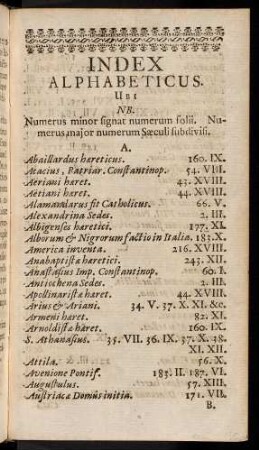 INDEX
ALPHABETICUS.
UBI
NB.
Numerus minor signat numerum folii. Nu-
merus major numerum Sæculi subdivisi.
A.
Abaillardus hereticus. 160. IX.
Atacius, Patriar. Constantinop. 54. VIII.
Aeriani hæret. 43. XVIII.
Aetiani hæret. 44. XVIII.
Alamundarus fit Catholicus. 66. V.
Alexandrina Sedes. 2. III.
Albigenses hæretici. 177. XI.
Alborum & Nigrorum factio in Italia. 183. X.
America inventa. 216. XVIII.
Anabaptistæ hæretici. 243. XII.
Anastasius Imp. Constantinop. 60. I.
Antiochena Sedes. 2. III.
Apollinaristæ hæret. 44. XVIII.
Arius & Ariani. 34. V. 37. X. XI. &c.
Armeni hæret. 82. XI.
Arnoldistæ hæret. 160. IX.
S. Athanasius. 35. VII. 36. IX. 37. X. 38.
XI. XII.
Attila. 56. X.
Avenione Pontif. 185. II. 187. VI.
Augustulus. 57. XIII.
Austriaca Domûs initia. 171. VII.
B.